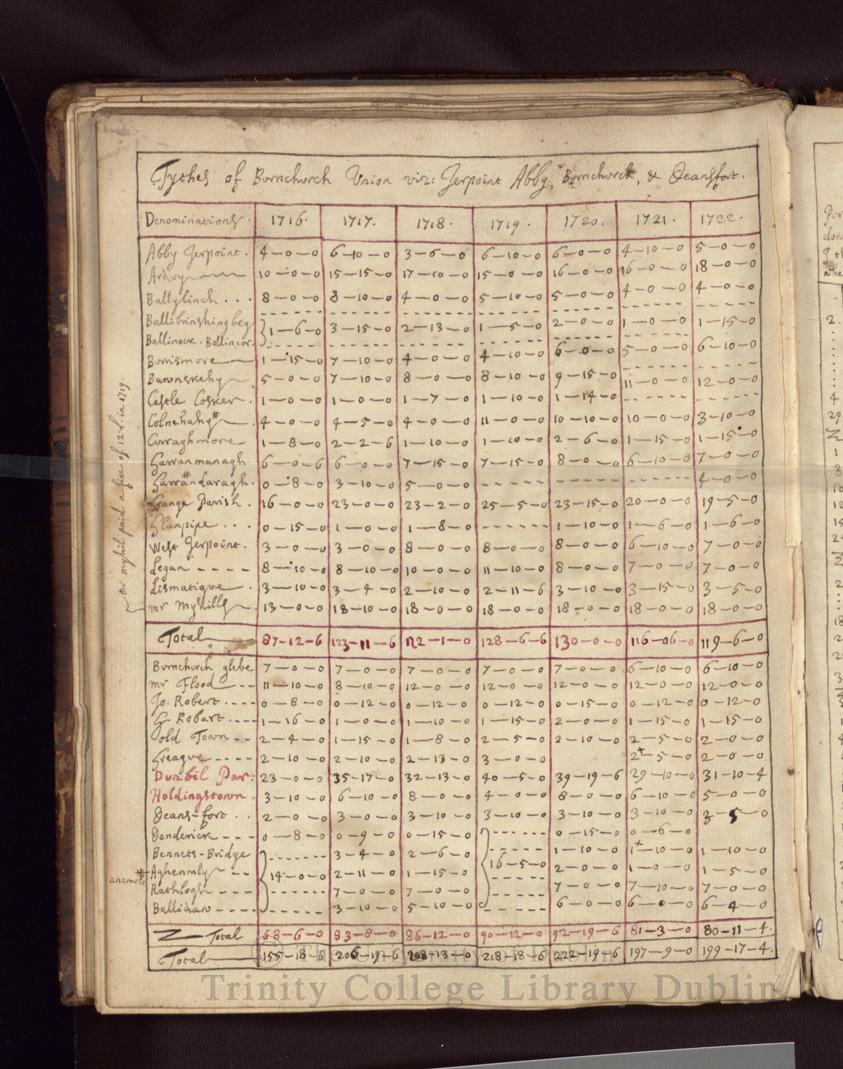 Tythes of Burnchurch Union viz: Jerpoint Abby, Burnchurch, & Deansfort.
Denominations. 1716. 1717. 1718. 1719. 1720. 1721. 1722.
Abby Jerpoint. 4-0-0 6-10-0 3-6-0 6-10-0 6-0-0 4-10-0 5-0-0
Ardry 10-0-0 15-15-0 17-10-0 15-0-0 16-0-0 16-0-0 18-0-0
Ballylinch... 8-0-0 8-10-0 4-0-0 5-10-0 5-0-0 4-0-0 4-0-0
Ballibrinshingbeg
Ballinour. 1-6-0 3-15-0 2-13-0 1-5-0 2-0-0 1-0-0 1-15-0
Burrismore 1-15-0 7-10-0 4-0-0 4-10-0 6-0-0 5-0-0 6-10-0
Bawnskehy 5-0-0 7-10-0 8-0-0 8-10-0 9-15-0 11-0-0 12-0-0
Castle Cosker. 1-0-0 1-0-0 1-7-0 1-10-0 1-14-0
Colnehahy# 4-0-0 4-5-0 4-0-0 11-0-0 10-10-0 10-0-0 3-10-0
Curraghmore 1-8-0 2-2-6 1-10-0 1-10-0 2-6-0 1-15-0 1-15-0
Garranmanagh 6-0-6 6-0-0 7-15-0 7-15-0 8-0-0 6-10-0 7-0-0
Garrandaragh. 0-8-0 3-10-0 5-0-0 4-0-0
Grange Parish. 16-0-0 23-0-0 23-2-0 25-5-0 23-15-0 20-0-0 19-5-0
Glanpipe.... 0-15-0 1-0-0 1-8-0 1-10-0 1-6-0 1-6-0
West Jerpoint. 3-0-0 3-0-0 8-0-0 8-0-0 8-0-0 6-10-0 7-0-0
Legan---- 8-10-0 8-10-0 10-0-0 11-10-0 8-0-0 7-0-0 7-0-0
Lismatigue 3-10-0 3-4-0 2-10-0 2-11-6 3-10-0 3-15-0 3-5-0
mr Myhills 13-0-0 18-10-0 18-0-0 18-0-0 18-0-0 18-0-0 18-0-0
mr myhil paid a fine of 12 l. in 1719.
Total 87-12-6 123-11-6 112-1-0 128-6-6 130-0-0 116-06-0 119-6-0
Burnchurch glebe 7-0-0 7-0-0 7-0-0 7-0-0 7-0-0 6-10-0 6-10-0
mr Flood 11-10-0 8-10-0 12-0-0 12-0-0 12-0-0 12-0-0 12-0-0
Jo. Robert.... 0-8-0 0-12-0 0-12-0 0-12-0 0-15-0 0-12-0 0-12-0
G. Robart.... 1-16-0 1-0-0 1-10-0 1-15-0 2-0-0 1-15-0 1-15-0
old Town--- 2-4-0 1-15-0 1-8-0 2-5-0 2-10-0 2-5-0 2-0-0
Greague---- 2-10-0 2-10-0 2-13-0 3-0-0 2+5-0 2-0-0
Dunbil Par: 23-0-0 35-17-0 32-13-0 40-5-0 39-19-6 29-10-0 31-10-4
Holdingstown. 3-10-0 6-10-0 8-0-0 4-0-0 8-0-0 6-10-0 5-0-0
Deans-fort... 2-0-0 3-0-0 3-10-0 3-10-0 3-10-0 3-10-0 3-5-0
Donderick--- 0-8-0 0-9-0 0-15-0 0-15-0 0-6-0
Bennets-Bridge 3-4-0 2-6-0 1-10-0 1+10-0 1-10-0
anamult # Aghennly 14-0-0 2-11-0 1-15-0 16-5-0 2-0-0 1-0-0 1-5-0
Rathlogh--- 7-0-0 7-0-0 7-0-0 7-10-0 7-0-0
Ballidaw---- 3-10-0 5-10-0 6-0-0 6-0-0 6-4-0
Total 68-6-0 83-8-0 86-12-0 90-12-0 92-19-6 81-3-0 80-11-4.
Total 155-18-6 206-19-6 208-13-0 218-18-6 222-19-6 197-9-0 199-17-4.
Trinity College Library Dublin